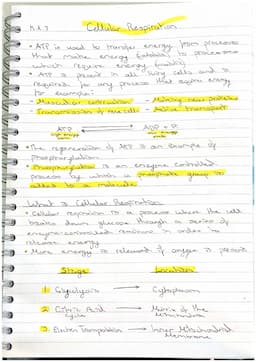 K.A.7 Cellular Respiration
• ATP is used to transfer energy from processes
that make energy (catabolic) to processes
which require energy (anabolic)
• ATP is present in all living cells and is
required for any process that requires energy
for example:
- Muscular contraction - Making new proteins
- Transmission of nerve cells - Active transport
ATP ADP + Pi
high energy low energy
• The regeneration of ATP is an example of
phosphorylation.
• Phosphorylation is an enzyme controlled
process by which a phosphate group is
added to a molecule
What is Cellular Respiration
• Cellular respiration is a process where the cell
breaks down glucose through a series of
enzyme-controlled reactions in order to
release energy
• More energy is released if oxygen is present
Stage Location
1 Glycolysis → Cytoplasm
2 Citric Acid Cycle → Matrix of the Mitochondria
3 Electron Transportation → Inner Mitochondrial Membrane